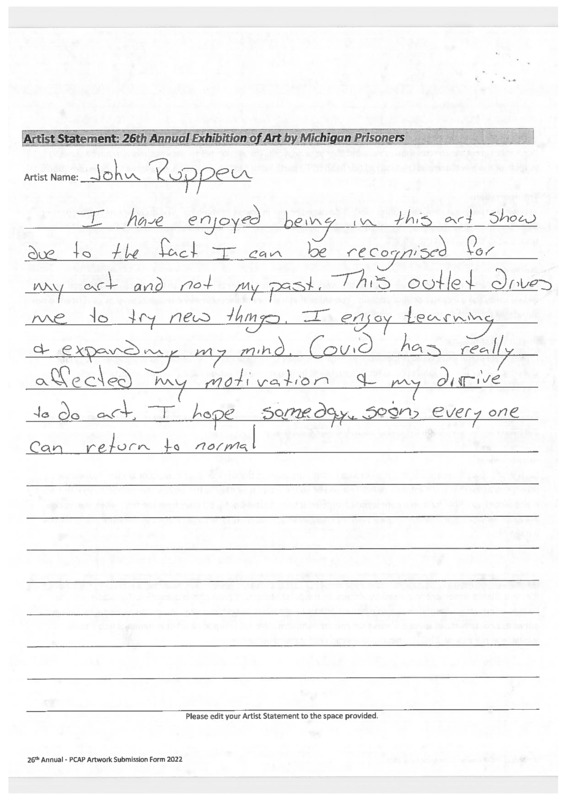 Artist Statement: 26th Annual Exhibition of Art by Michigan Prisoners
Artist Name: John Ruppen
I have enjoyed being in this art show
due to the fact I can be recognised for
my art and not my past. This outlet drives
me to try new things. I enjoy learning
& expanding my mind. Covid has really
affected my motivation & my drive
to do art. I hope someday soon, everyone
can return to normal
Please edit your Artist Statement to the space provided.
26th Annual - PCAP Artwork Submission Form 2022